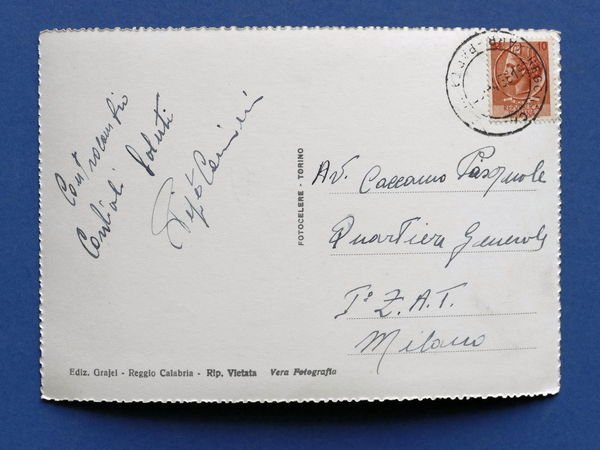 Contraccambio
Cordiali Saluti
FOTOCELERE - TORINO
10
Av. Caccamo Pasquale
Quartiere Generale
1° Z.A.T.
Milano
Ediz. Grajel - Reggio Calabria - Rip. Vietata Vera Fotografia